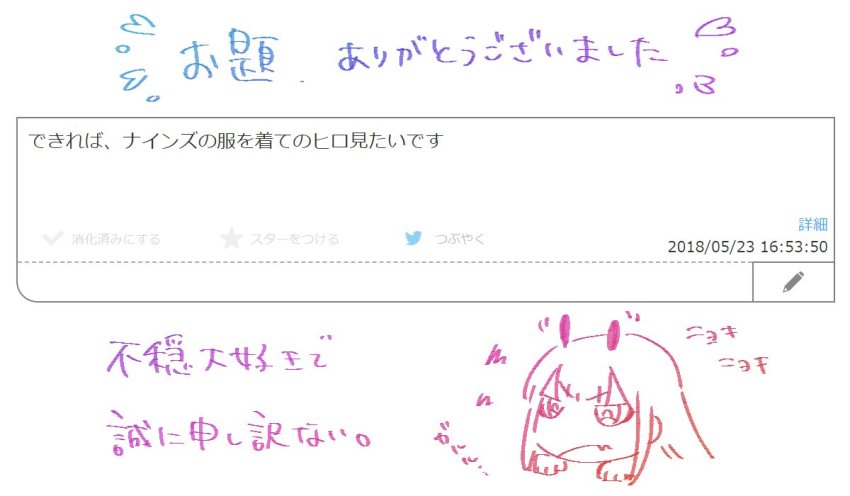 お題、ありがとうございました
できれば、ナインズの服を着てのヒロ見たいです
詳細
消化済みにする スターをつける つぶやく
2018/05/23 16:53:50
不穏大好きで
誠に申し訳ない。
ニョキ
ニョキ
ガルル…